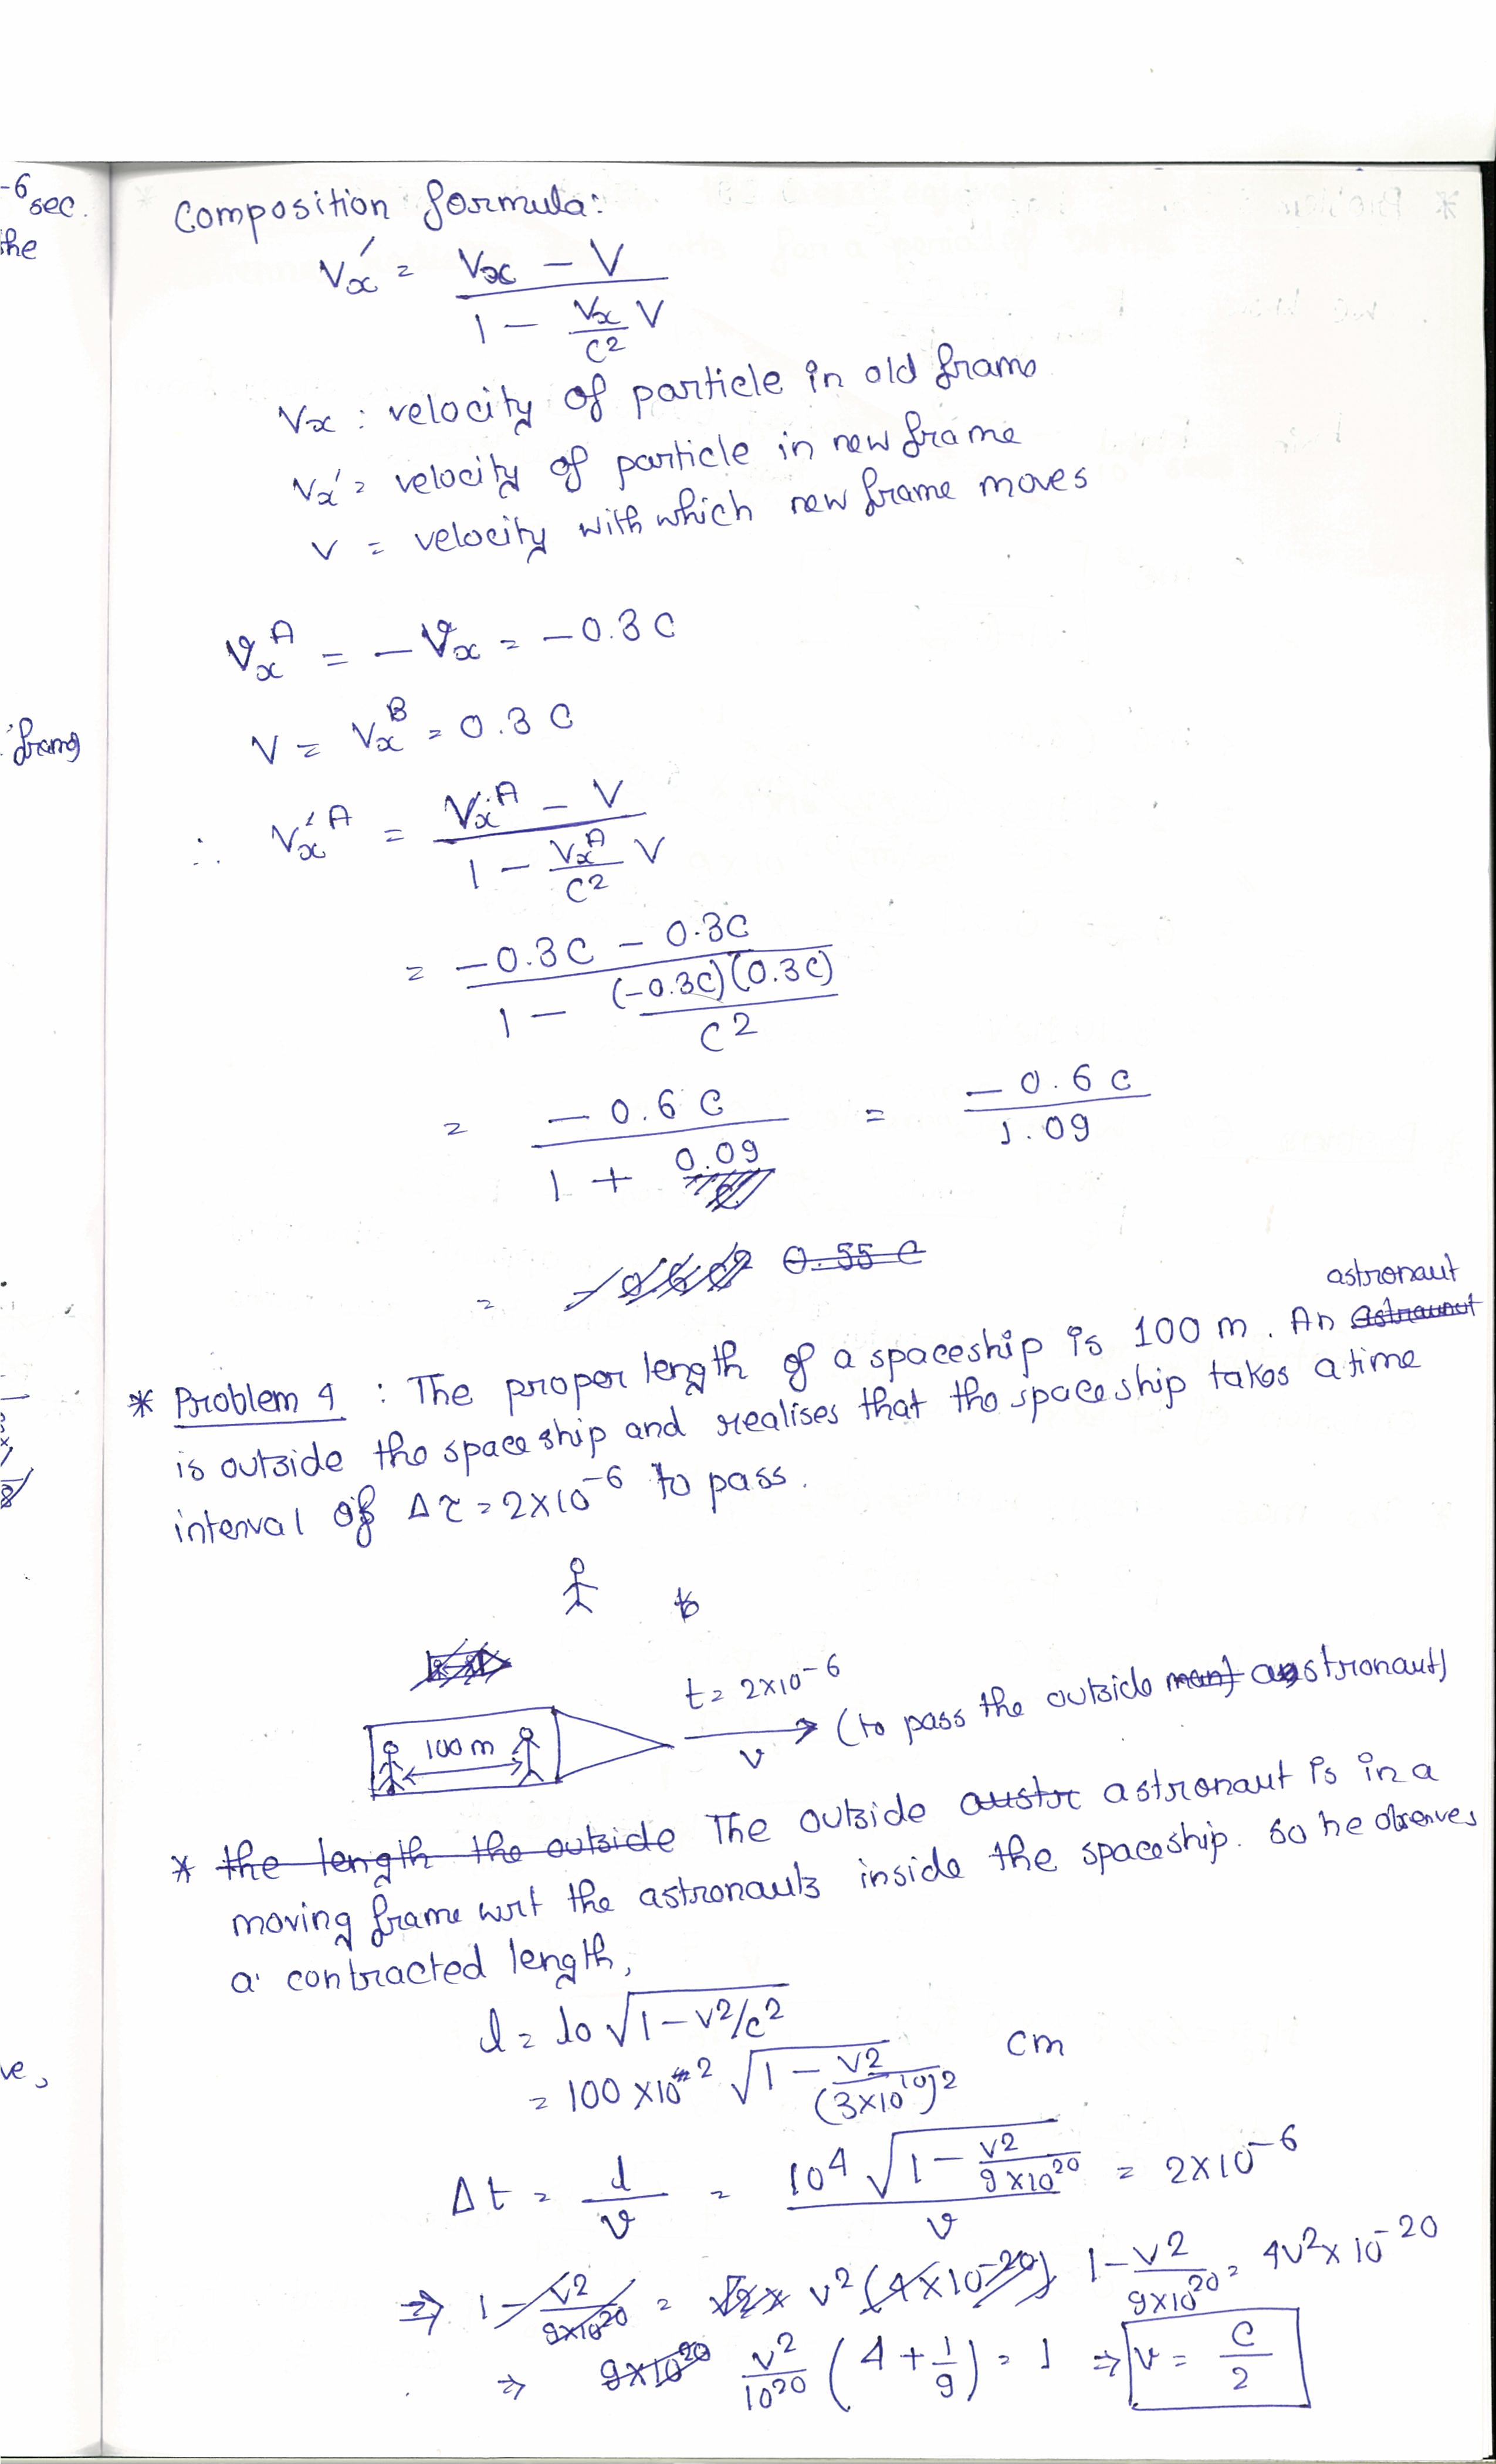 -6 sec.
the
frame
ve,
Composition formula:
Vx' = (Vx - V) / (1 - (Vx/C²) V)
Vx : velocity of particle in old frame
Vx' = velocity of particle in new frame
V = velocity with which new frame moves
Vx^A = - Vx = -0.3 C
V = Vx^B = 0.3 C
∴ Vx'^A = (Vx^A - V) / (1 - (Vx^A/C²) V)
= (-0.3C - 0.3C) / (1 - (-0.3C)(0.3C)/C²)
= (-0.6 C) / (1 + 0.09) = (-0.6 C) / 1.09
= 0.55 C
astronaut
* Problem 4 : The proper length of a spaceship is 100 m. An
is outside the space ship and realises that the spaceship takes a time
interval of Δτ = 2×10^-6 to pass.
t = 2×10^-6
100 m
v
(to pass the outside man) austronaut)
* the length the outside The outside austr astronaut is in a
moving frame wrt the astronauts inside the spaceship. So he observes
a contracted length,
l = l0 √(1 - v²/c²)
= 100 ×10² √(1 - v²/(3×10^10)²) cm
Δt = l/v = 10^4 √(1 - v²/(9×10^20)) / v = 2×10^-6
⇒ 1 - v²/(9×10^20) = v² (4×10^-20) 1 - v²/(9×10^20) = 4v² × 10^-20
⇒ 9×10^20 v²/10^20 (4 + 1/9) = 1 ⇒ v = C/2